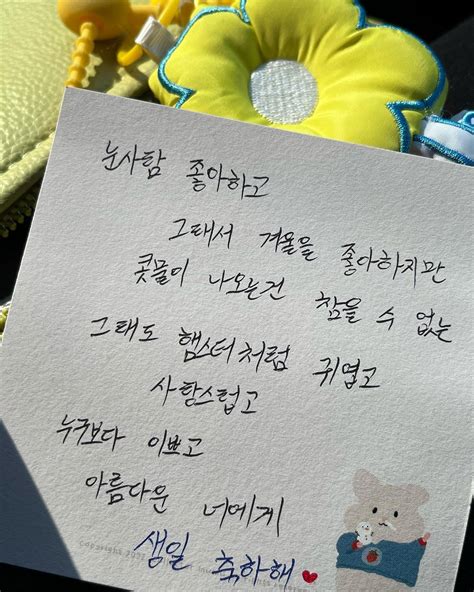 눈사람 좋아하고
그래서 겨울을 좋아하지만
콧물이 나오는건 참을 수 없는
그래도 햄스터처럼 귀엽고
사랑스럽고
누구보다 이쁘고
아름다운 너에게
생일 축하해